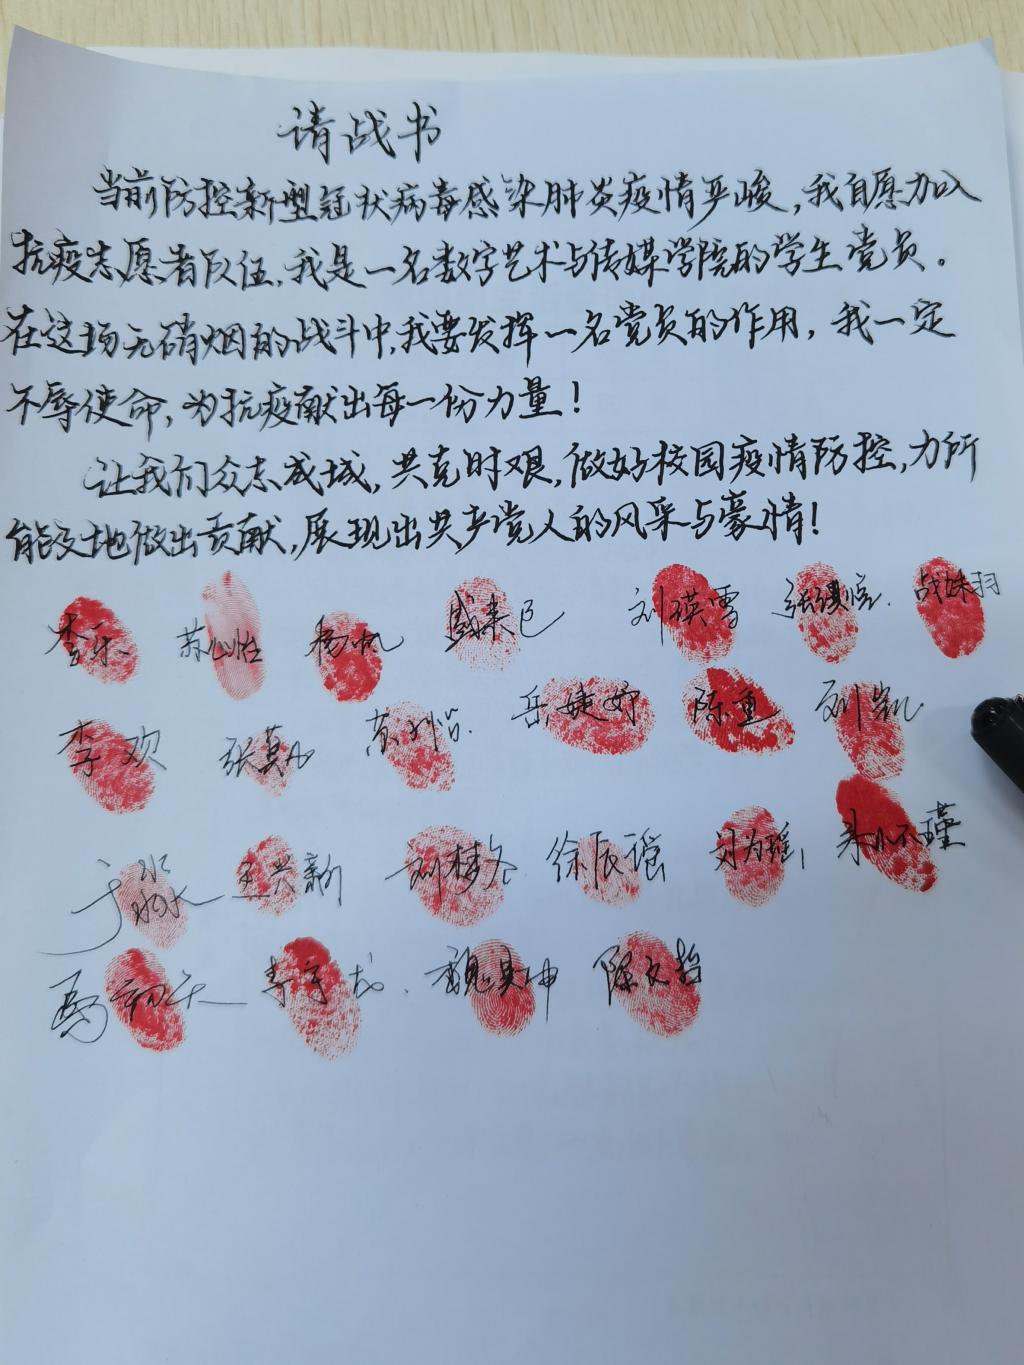 请战书
当前防控新型冠状病毒感染肺炎疫情严峻，我自愿加入
抗疫志愿者队伍，我是一名数字艺术与传媒学院的学生党员。
在这场无硝烟的战斗中，我要发挥一名党员的作用，我一定
不辱使命，为抗疫献出每一份力量！
让我们众志成城，共克时艰，做好校园疫情防控，力所
能及地做出贡献，展现出共产党人的风采与豪情！
李乐 杨帆 刘瑛雪 战姝羽
李欢 岳婕妤 陈重 刘凯
王兴新 刘梦冬 徐辰谣
陈文哲